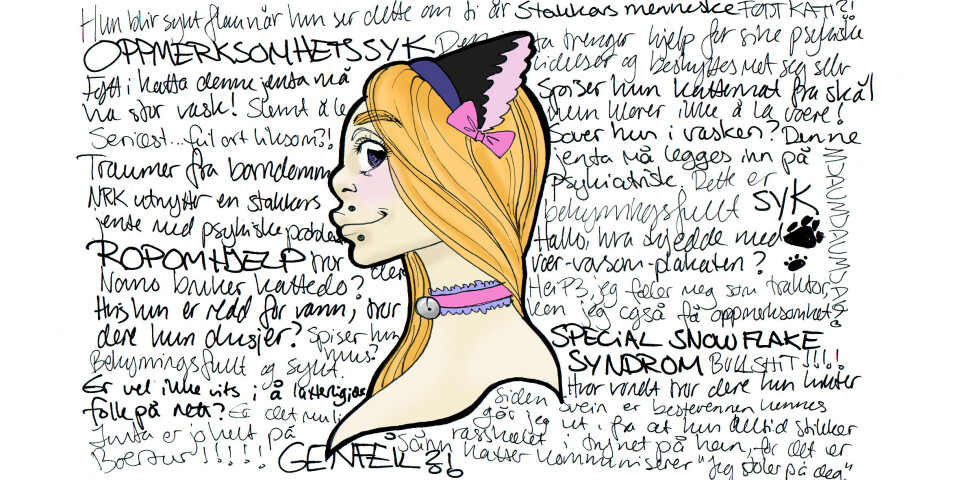 Hun blir sykt flau når hun ser dette om ti år
Stakkars menneske
FØDT KATT?!
OPPMERKSOMHETSSYK
trenger hjelp for sine psykiske
lidelser og beskyttes mot seg selv
Født i katta denne jenta må
ha stor vask!
Seriøst... ført liksom?!
Spiser hun kattemat fra skål
Hun klarer ikke å la være!
Sover hun i vasken? Denne
jenta må legges inn på
Traumer fra barndommen
NRK utnytter en stakkars
jente med psykiske problem
psykiatrisk. Dette er
bekymringsfullt SYK
MDAUMDAUMDAU?
ROP OM HJELP tror dere
Hallo, hva skjedde med
vær-varsom-plakaten?
Nano bruker kattedo?
Hvis hun er redd for vann, tror
dere hun dusjer? Spiser hun
mus?
Hei P3, jeg føler meg som traktor,
kan jeg også få oppmerksomhet?
SPECIAL SNOWFLAKE
SYNDROM BULLSHIT!!!!
Bekymringsfullt og sykt.
Er vel ikke vits i å latterliggjøre
folk på nett? Er det mulig
Jenta er jo helt på
Bærtur!!!!!
GENFEIL?!
Hvor vondt tror dere hun lukter
Siden Svein er bestevennen hennes
går jeg ut i fra at hun alltid stikker
rasshølet i trynet på han, for det er
sånn katter kommuniserer "Jeg stoler på deg".